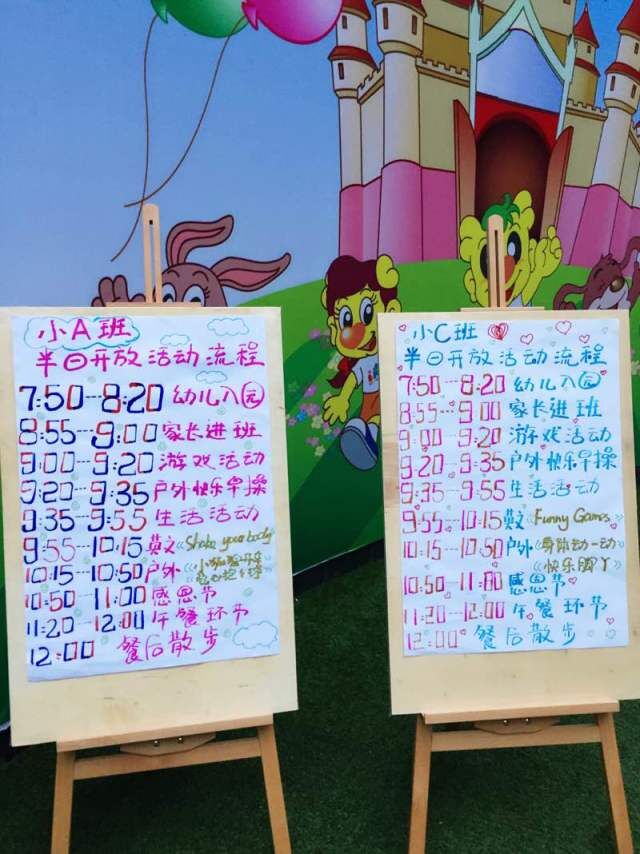 小A班
半日开放活动流程
7:50--8:20 幼儿入园
8:55--9:00 家长进班
9:00--9:20 游戏活动
9:20--9:35 户外快乐早操
9:35--9:55 生活活动
9:55--10:15 英文《Shake your body》
10:15--10:50 户外
10:50--11:00 感恩节
11:20--12:00 午餐环节
12:00 餐后散步
小C班
半日开放活动流程
7:50--8:20 幼儿入园
8:55--9:00 家长进班
9:00--9:20 游戏活动
9:20--9:35 户外快乐早操
9:35--9:55 生活活动
9:55--10:15 英文《Funny Games》
10:15--10:50 户外《身体动一动》
《快乐脚丫》
10:50--11:00 感恩节
11:20--12:00 午餐环节
12:00 餐后散步